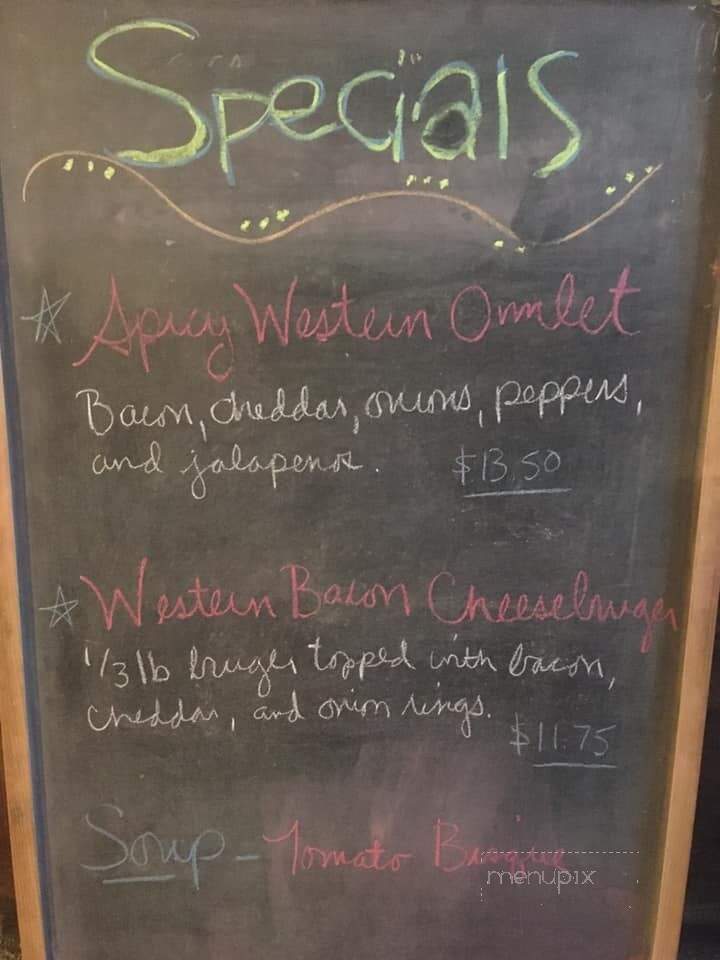 Specials
Spicy Western Omlet
Bacon, cheddar, onions, peppers,
and jalapenos. $13.50
Western Bacon Cheesebruger
1/3 lb bruger topped with bacon,
cheddar, and onion rings.
$11.75
Soup - Tomato Bisque
menupix